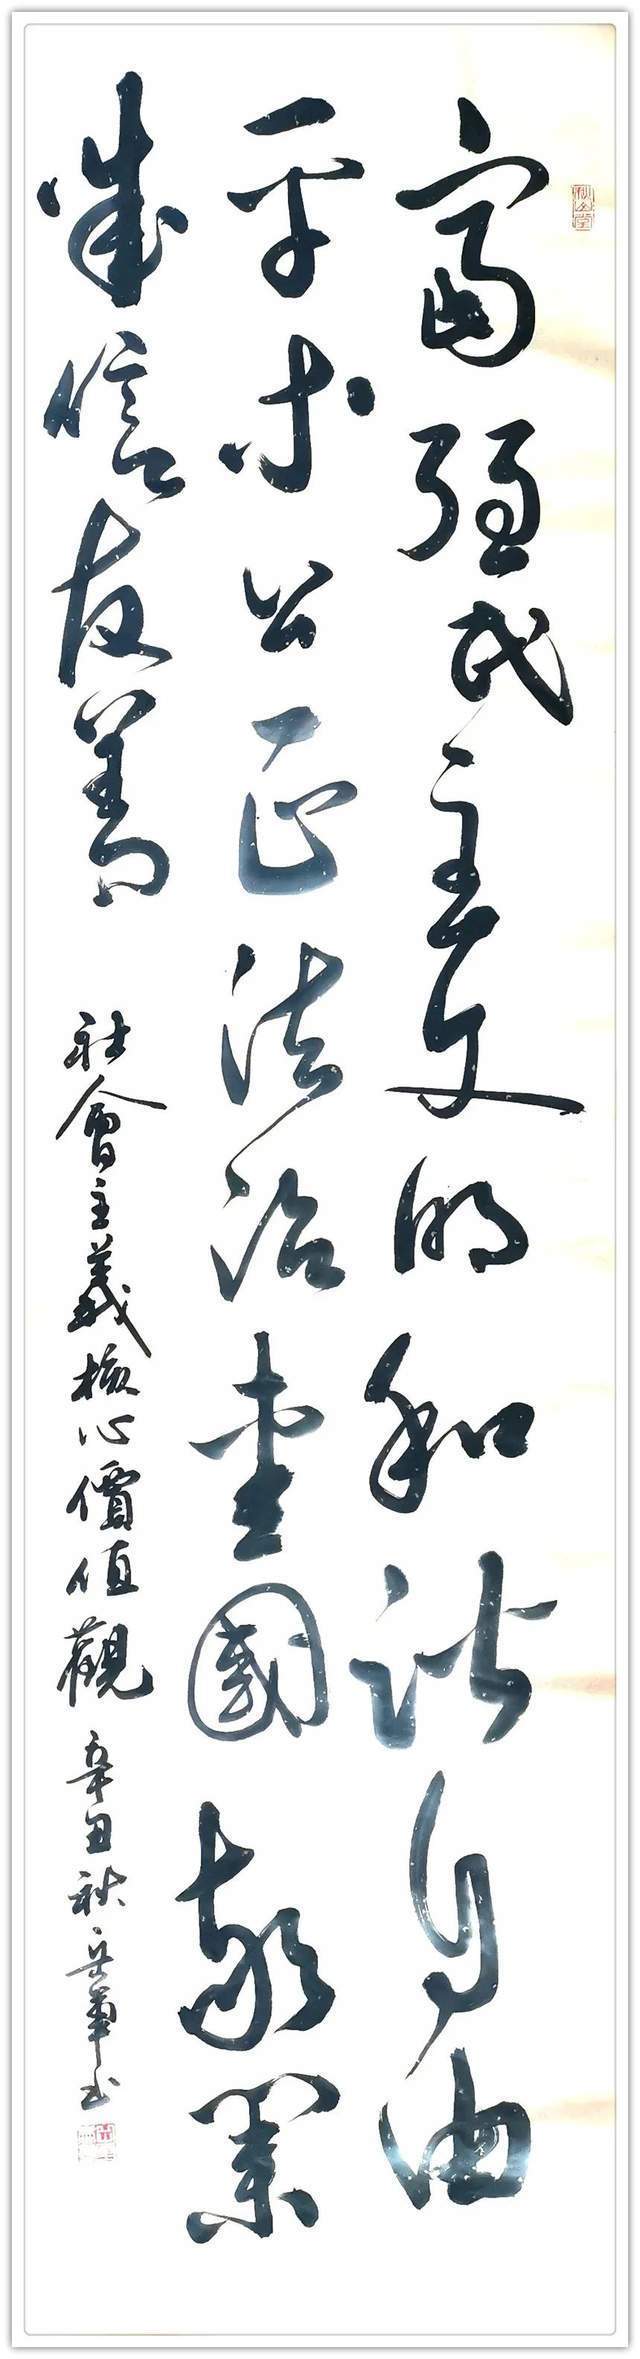 富強民主文明和諧自由
平等公正法治愛國敬業
誠信友善
社會主義核心價值觀 辛丑秋